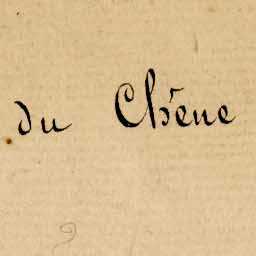 du Chêne